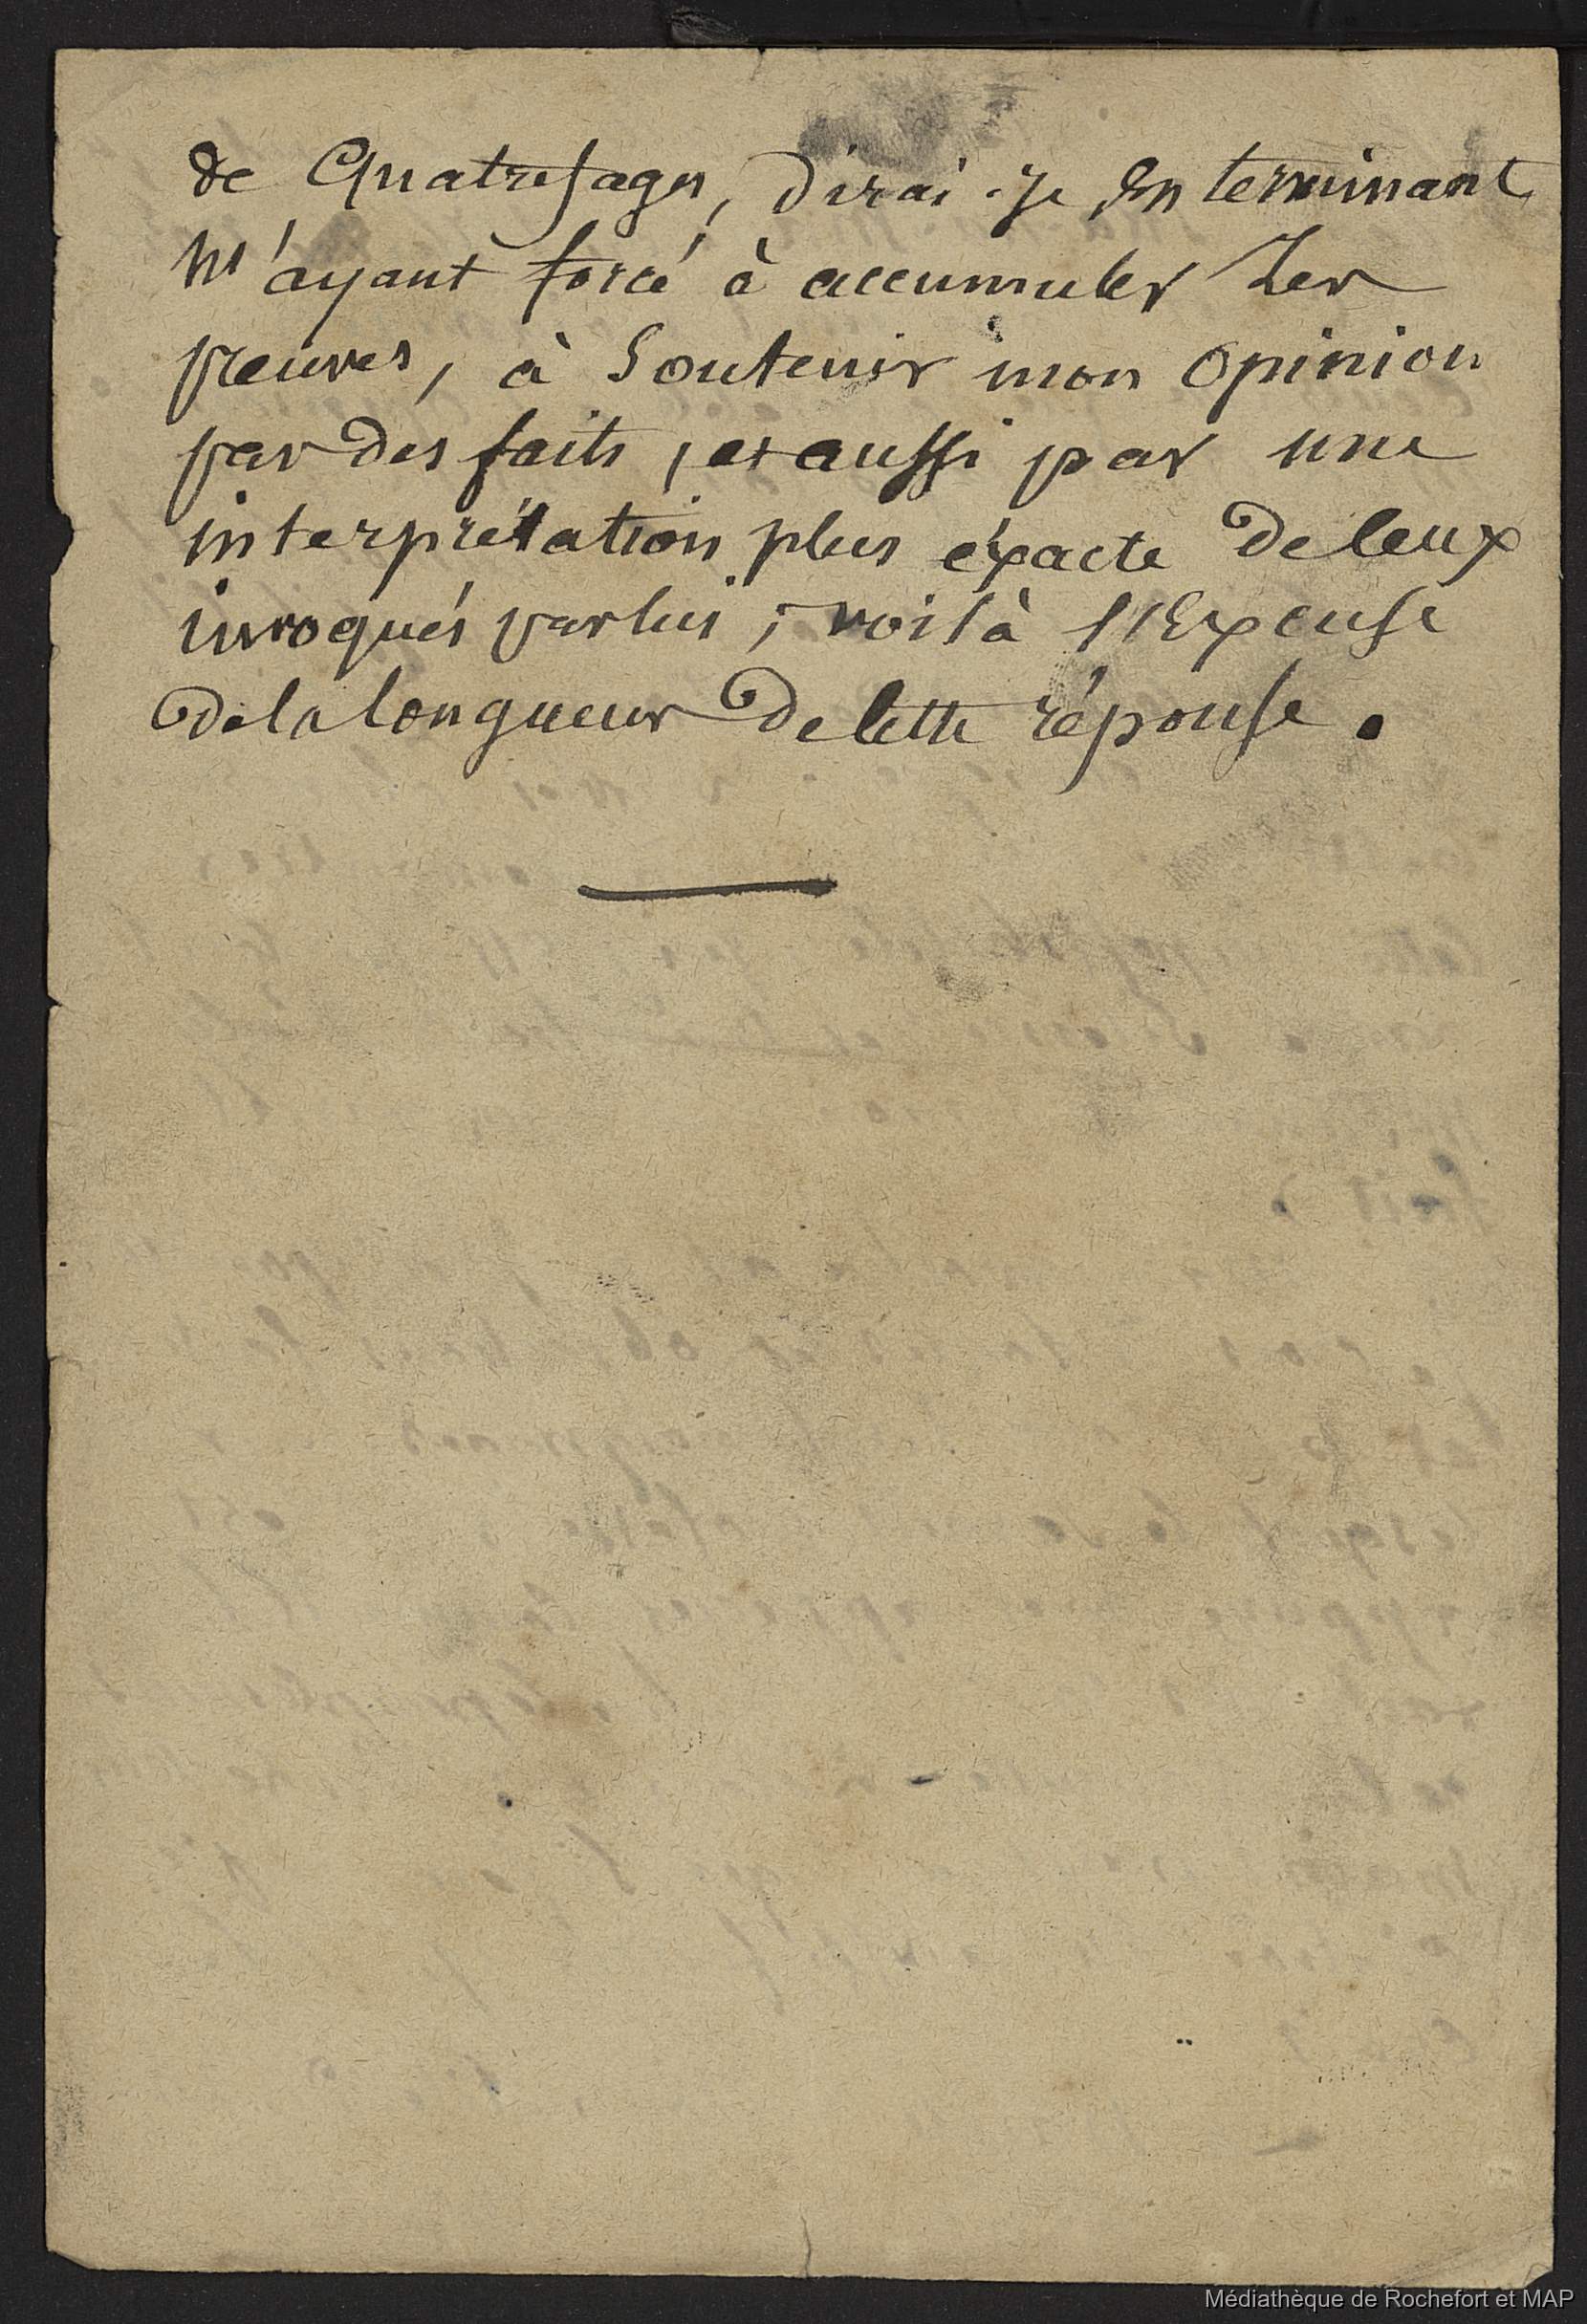 de Quatrefages, dirai-je en terminant
m'ayant forcé à accumuler les
preuves, à soutenir mon opinion
par des faits, et aussi par une
interprétation plus éxacte de ceux
invoqués par lui ; voilà l'Excuse
de la longueur de cette réponse.
Médiathèque de Rochefort et MAP